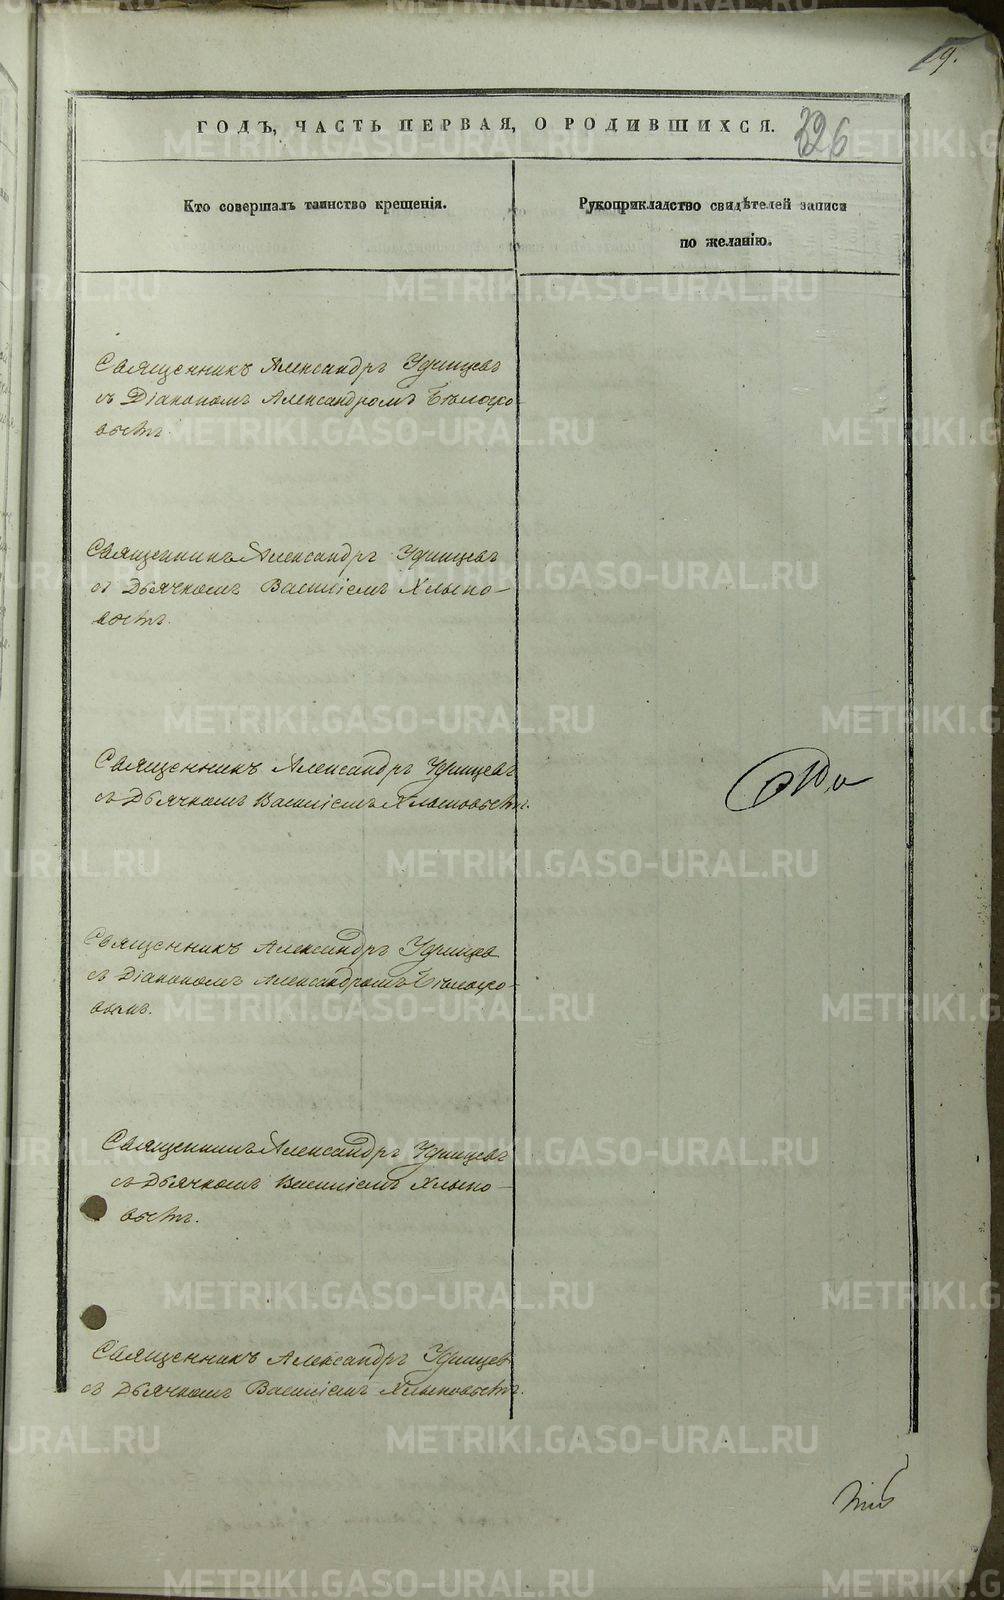 19.
ГОДЪ, ЧАСТЬ ПЕРВАЯ, О РОДИВШИХСЯ.
226
Кто совершалъ таинство крещенія.
Рукоприкладство свидѣтелей записи
по желанію.
Священникъ Александръ Удинцевъ
съ Діакономъ Александромъ Бѣлоро-
вымъ.
Священникъ Александръ Удинцевъ
съ Дьячкомъ Василіемъ Хлыно-
вымъ.
Священникъ Александръ Удинцевъ
съ Дьячкомъ Василіемъ Хлыновымъ.
Священникъ Александръ Удинцевъ
съ Діакономъ Александромъ
вымъ.
Священникъ Александръ Удинцевъ
съ Дьячкомъ Василіемъ Хлыно-
вымъ.
Священникъ Александръ Удинцевъ
съ Дьячкомъ Василіемъ Хлыновымъ.
METRIKI.GASO-URAL.RU